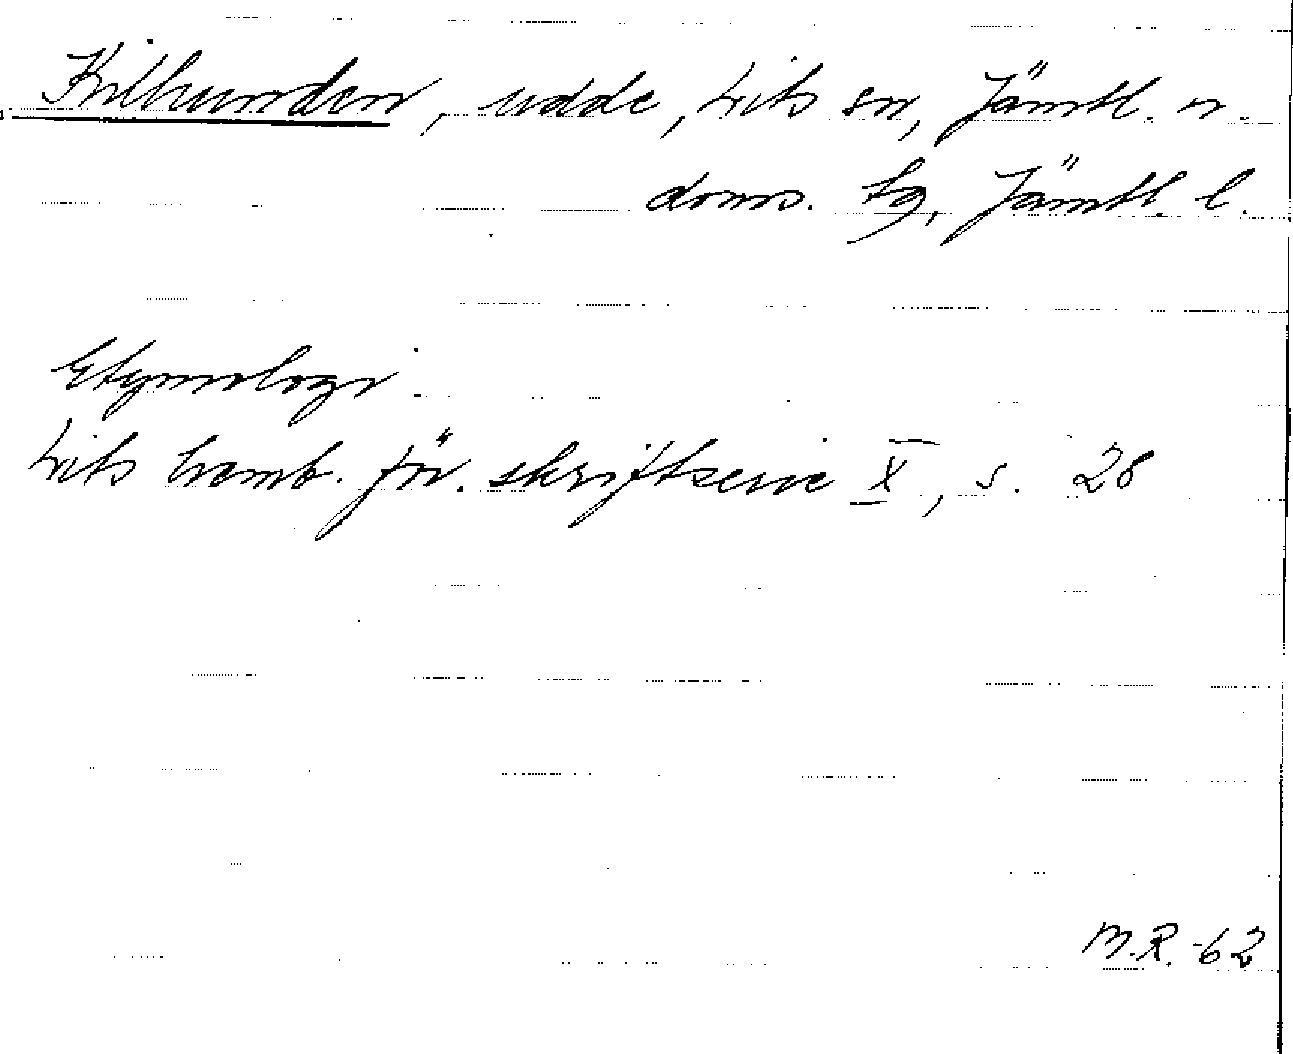 Kilhunden, udde, Lits sn, Jämtl. n.
doms. tg, Jämtl. l.
Etymologi
Lits hemb. för. skriftserie X, s. 28
M.R. -62